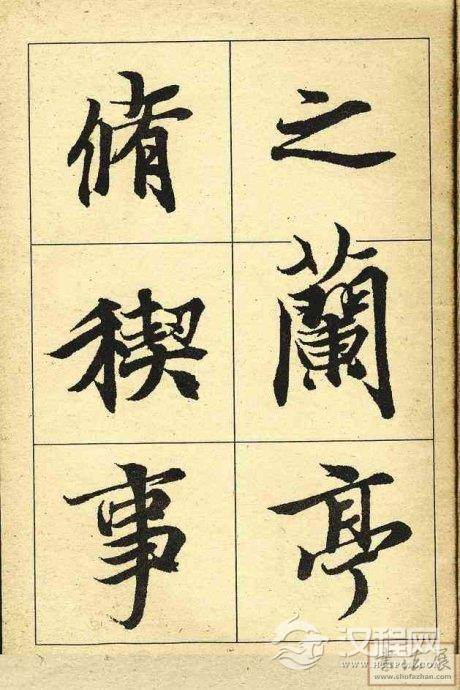 之蘭亭
脩稧事
汉程网
www.shufazhan.com